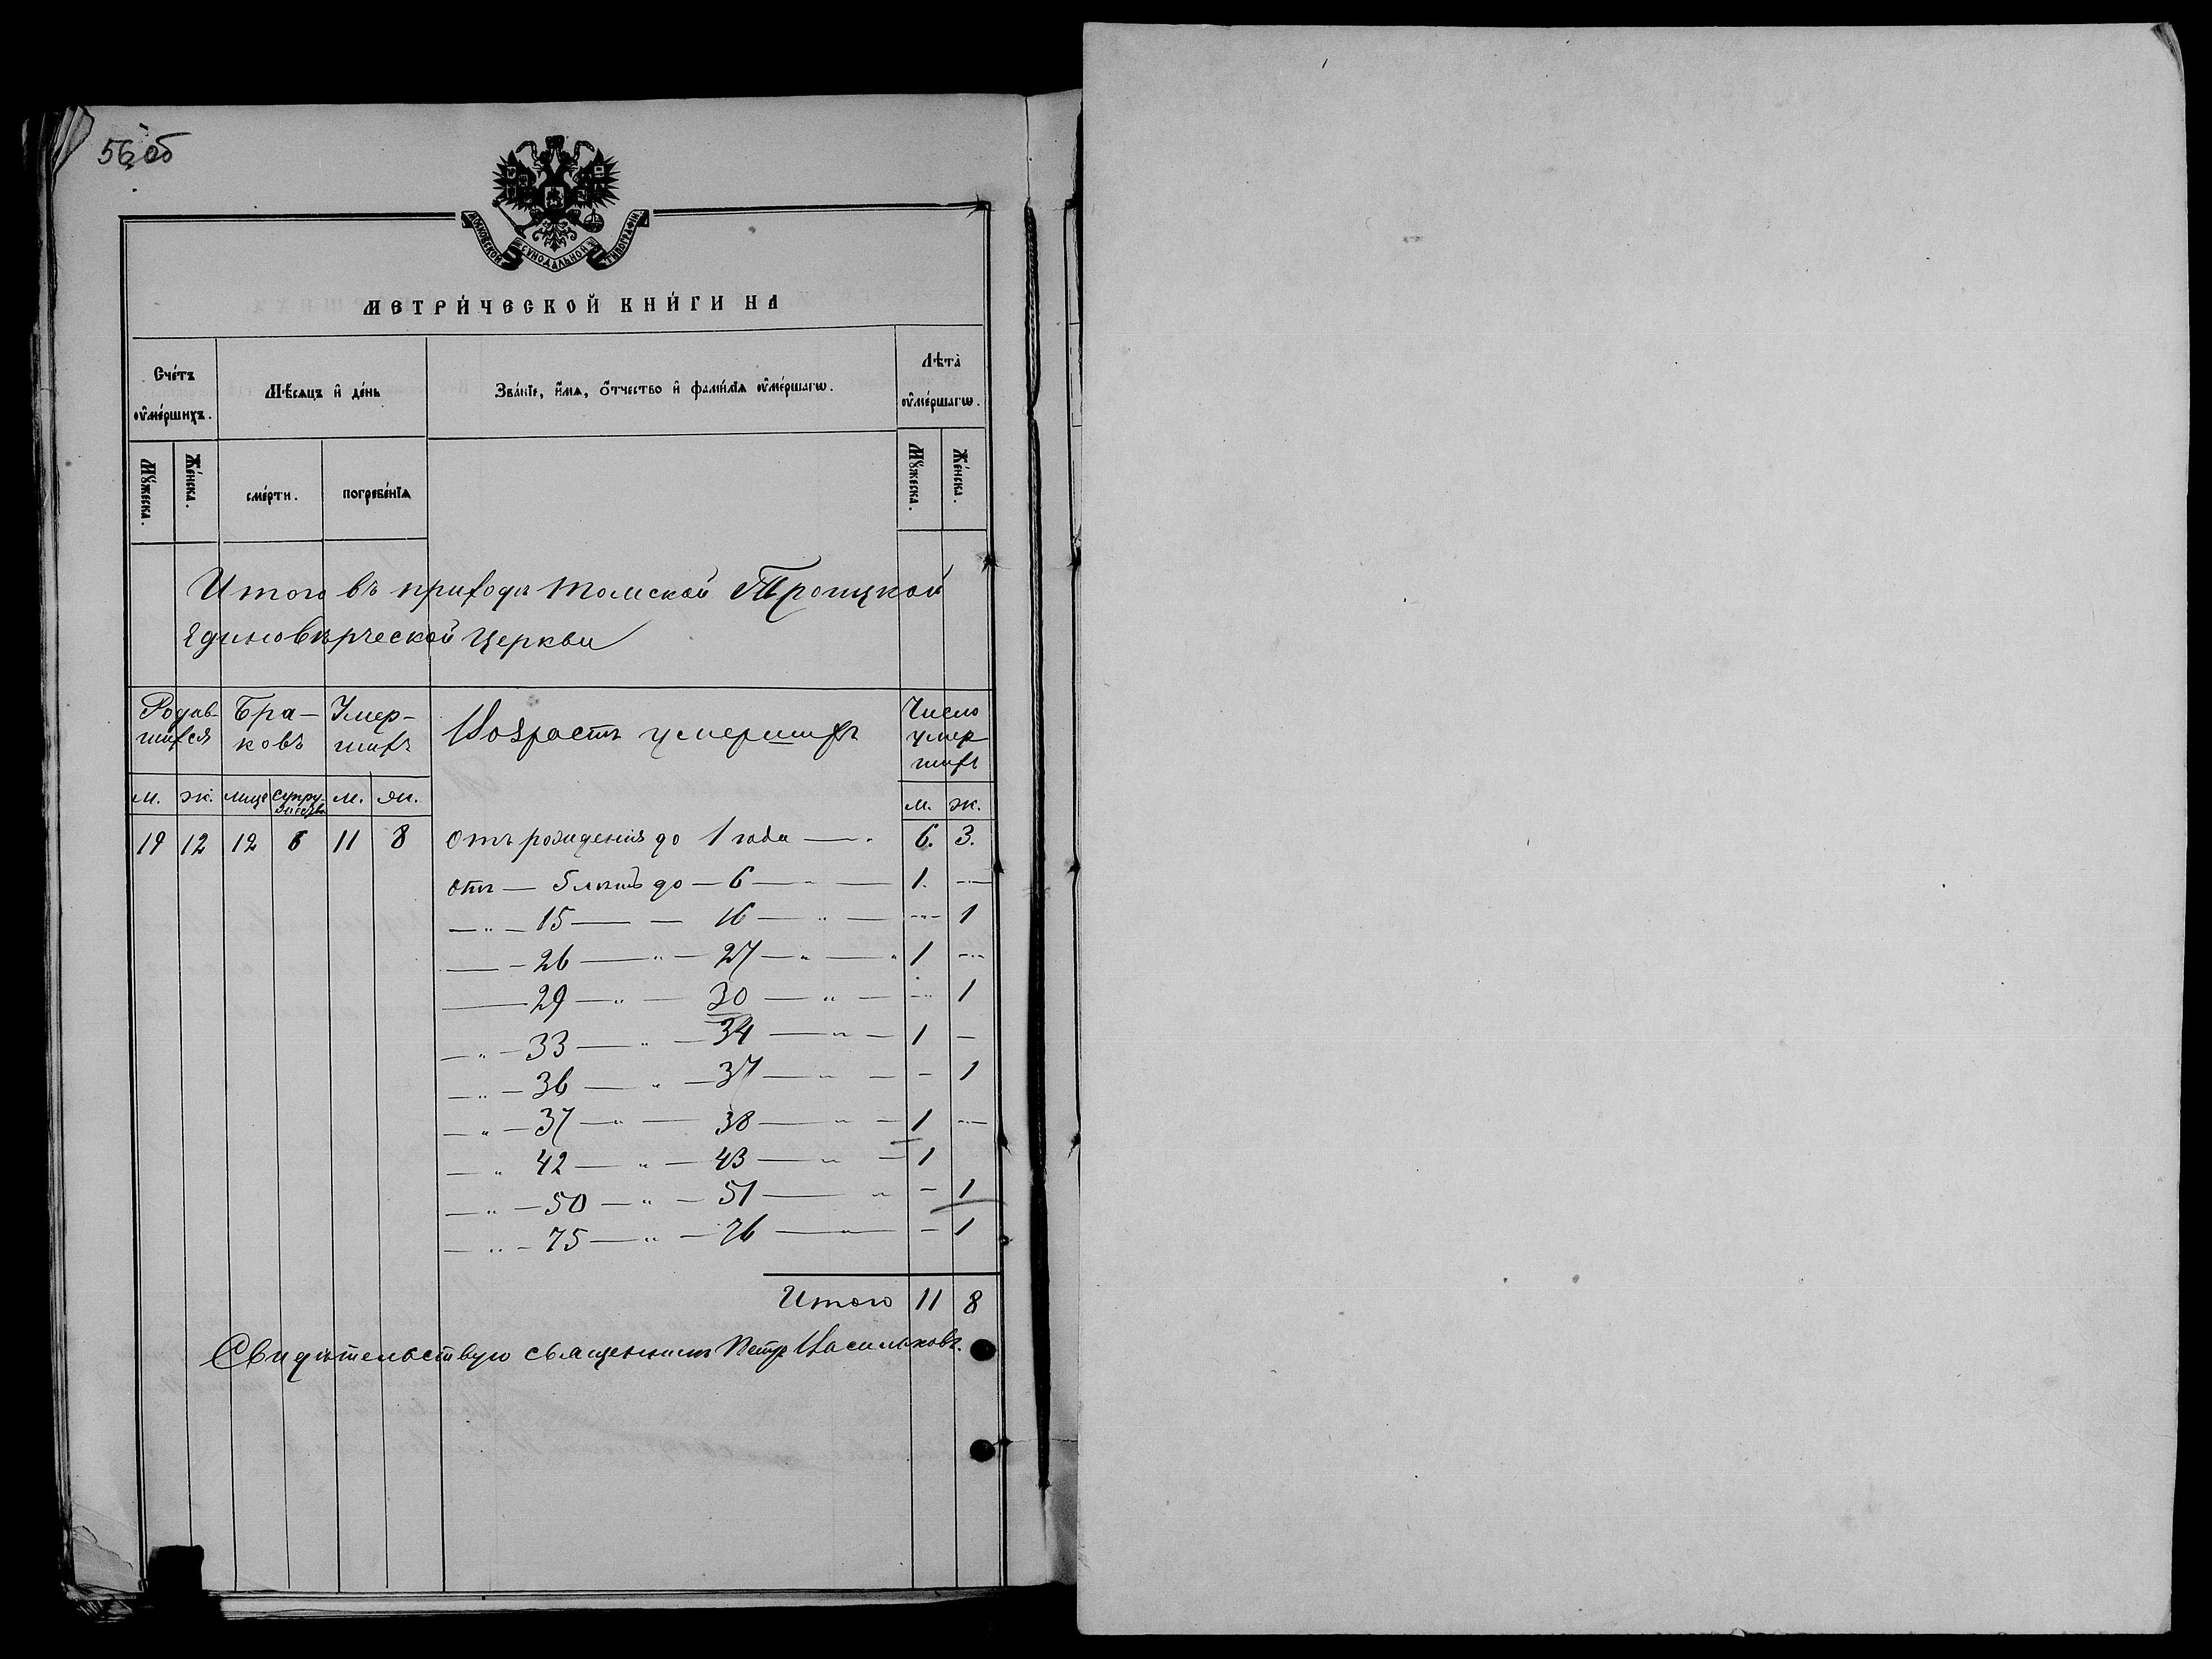 56 об
МОСКОВСКОЙ СѴНОДАЛЬНОЙ ТИПОГРАФІИ
МЕТРИ́ЧЕСКОЙ КНИ́ГИ НА
Сче́тъ ᲂу҆ме́ршихъ.
Мѣ́сѧцъ и҆ де́нь
Зва́нїе, и҆́мѧ, ѻ҆́тчество и҆ фами́лїѧ ᲂу҆ме́ршагѡ.
Лѣта̀ ᲂу҆ме́ршагѡ.
Мꙋ́жеска. Же́нска. сме́рти. погребе́нїѧ Мꙋ́жеска. Же́нска.
Итого въ приходѣ Томской Троицкой
Единовѣрческой Церкви
Родив- Бра- Умер- Возрастъ умершихъ Число
шихся ковъ шихъ умер
шихъ
м. ж. лице супружествъ м. ж. м. ж.
19 12 12 6 11 8 Отъ рожденія до 1 года — " 6. 3.
отъ — 5 лѣтъ до — 6 — " — 1. —
— " — 15 — — 16 — " — — 1
— — 26 — " — 27 — " — " 1 —
— 29 — " — 30 — " — — 1
— " — 33 — " — 34 — " — 1 —
— " — 36 — " — 37 — " — — 1
— " — 37 — " — 38 — " — 1 —
— " 42 — " — 43 — " — 1
— " — 50 — " — 51 — " — 1
— " — 75 — " — 76 — " — 1
Итого 11 8
Свидѣтельствую священникъ Петръ Васильковъ.